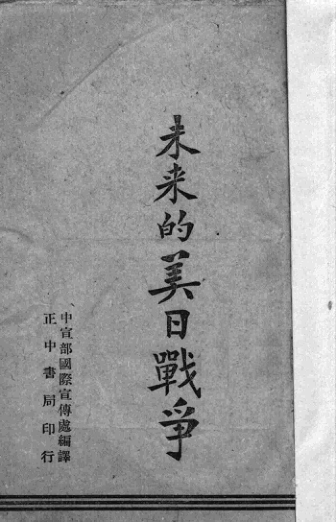 未来的美日戰爭
中宣部國際宣傳處編譯
正中書局印行